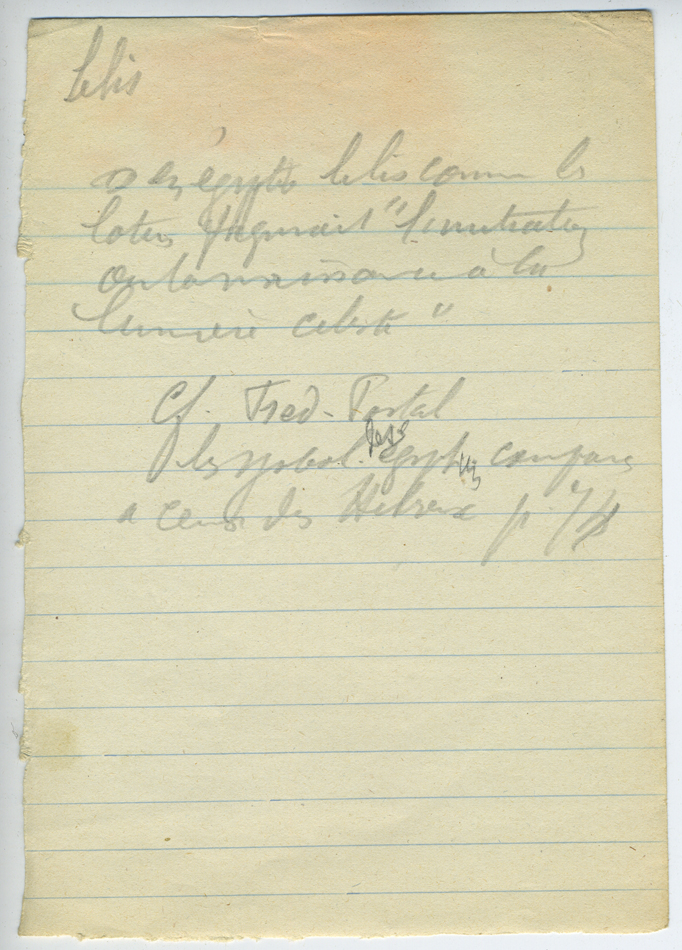 le lis
en égypte le lis comme le
lotus figurait "l'initiation
ou la naissance à la
lumière céleste"
Cf. Fred. Portal
les symbol. égypt. comparés
à ceux des Hébreux p.